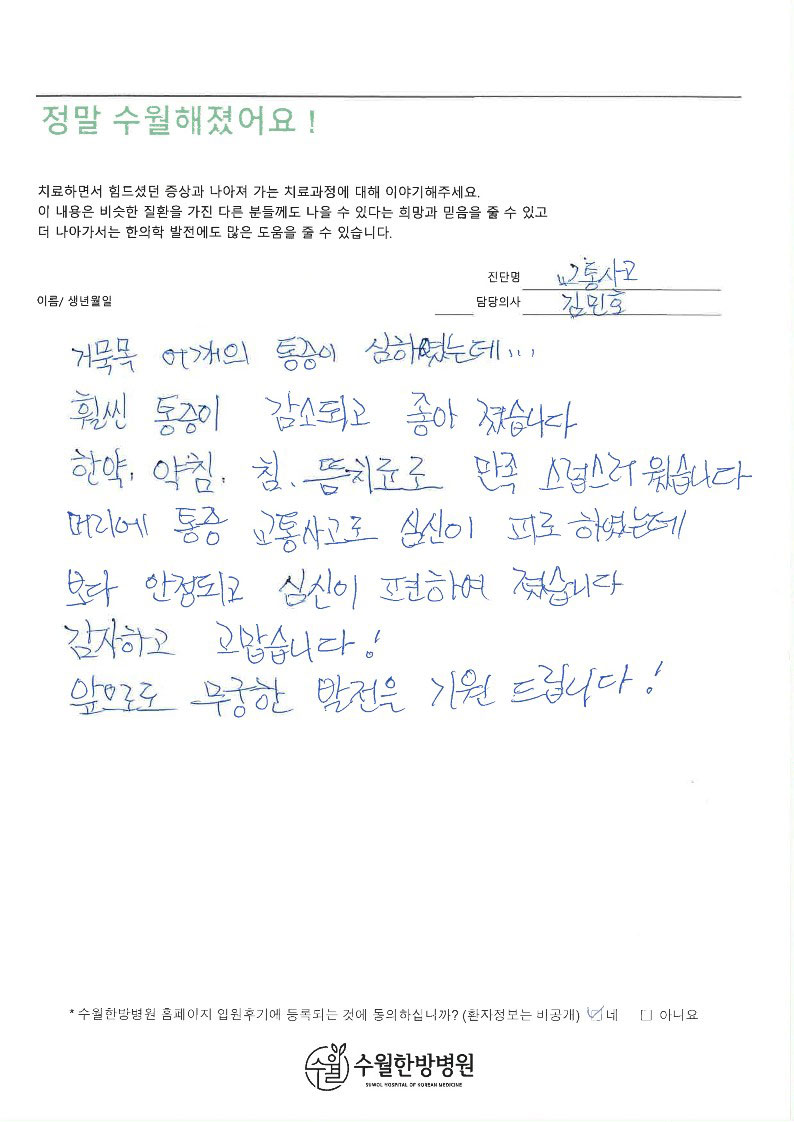 정말 수월해졌어요 !
치료하면서 힘드셨던 증상과 나아져 가는 치료과정에 대해 이야기해주세요.
이 내용은 비슷한 질환을 가진 다른 분들께도 나을 수 있다는 희망과 믿음을 줄 수 있고
더 나아가서는 한의학 발전에도 많은 도움을 줄 수 있습니다.
진단명 교통사고
이름/ 생년월일 담당의사 김민호
거묵목 어개의 통증이 심하였는데...
훨씬 통증이 감소되고 좋아 졌습니다
한약, 약침, 침, 뜸치료로 만족 스럽스러웠습니다
머리에 통증 교통사고로 심신이 피로 하였는데
보다 안정되고 심신이 편하여 졌습니다
감사하고 고맙습니다!
앞으로도 무궁한 발전을 기원 드립니다!
* 수월한방병원 홈페이지 입원후기에 등록되는 것에 동의하십니까? (환자정보는 비공개) 네 아니요
수월 수월한방병원
SUWOL HOSPITAL OF KOREAN MEDICINE